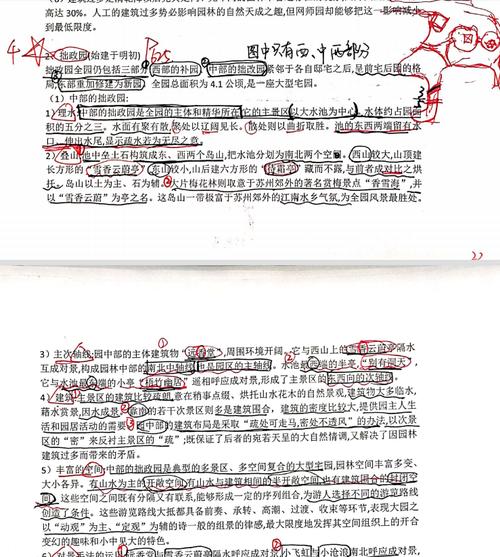 达到 30%。人工的建筑过多势必影响园林的自然天成之趣,但网师园却能够把这一影响减少
到最低限度。
2、拙政园(始建于明初)
图中只有西、中两部分
拙政园全园仍包括三部分:西部的补园、中部的拙政园紧邻于各自邸宅之后,呈前宅后园的格
局,东部重加修建为新园。全园总面积为 4.1 公顷,是一座大型宅园。
(1)中部的拙政园:
1)理水:中部的拙政园是全园的主体和精华所在。它的主景区以大水池为中心,水体约占园面
积的五分之三。水面有聚有散,聚处以辽阔见长,散处则以曲折取胜。池的东西两端留有水
口、伸出水尾,显示疏水若为无尽之意。
2)叠山:池中垒土石构筑成东、西两个岛山,把水池分划为南北两个空间。西山较大,山顶建
长方形的“雪香云蔚亭”;东山较小,山后建六方形的“待霜亭”藏而不露,与前者成对比之烘
托。岛山以土为主、石为辅。大片梅花林则取意于苏州郊外的著名赏梅景点“香雪海”,并
以“雪香云蔚”为亭之名。这岛山一带极富于苏州郊外的江南水乡气氛,为全园风景最胜处。
3)主次轴线:园中部的主体建筑物“远香堂”,周围环境开阔。它与西山上的雪香云蔚亭隔水
互成对景,构成园林中部的南北中轴线,也是园区的主轴线。水池的西半亭“别有洞天”,
它与水池最东端的小亭“梧竹幽居”遥相呼应成对景,形成了主景区的东西向的次轴线。
4)建筑:主景区的建筑比较疏朗,意在稍事点缀、烘托山水花木的自然景观,建筑物大多临水,
藉水赏景,因水成景。靠南的若干次景区则多是建筑围合,建筑的密度比较大,提供园主人生
活和园居活动的需要。园中部的建筑布局是采取“疏处可走马,密处不透风”的办法,以次景
区的“密”来反衬主景区的“疏”;既保证了后者的宛若天呈的大自然情调,又解决了因园林
建筑过多而带来的矛盾。
5)丰富的空间:中部的拙政园是典型的多景区、多空间复合的大型宅园,园林空间丰富多变、
大小各异。有山水为主的开敞空间,有山水与建筑相间的半开敞空间,也有建筑围合的封闭空
间。这些空间之间既有分隔又有联系,能够形成一定的序列组合,为游人选择不同的游览路线
创造了条件。这些游览路线大抵都具有前奏、承转、高潮、过渡、收束等环节,表现大园之
以“动观”为主、“定观”为辅的诗一般的组景的律感,最大限度地发挥其空间组织上的开合
变幻的趣味和小中见大的特色。